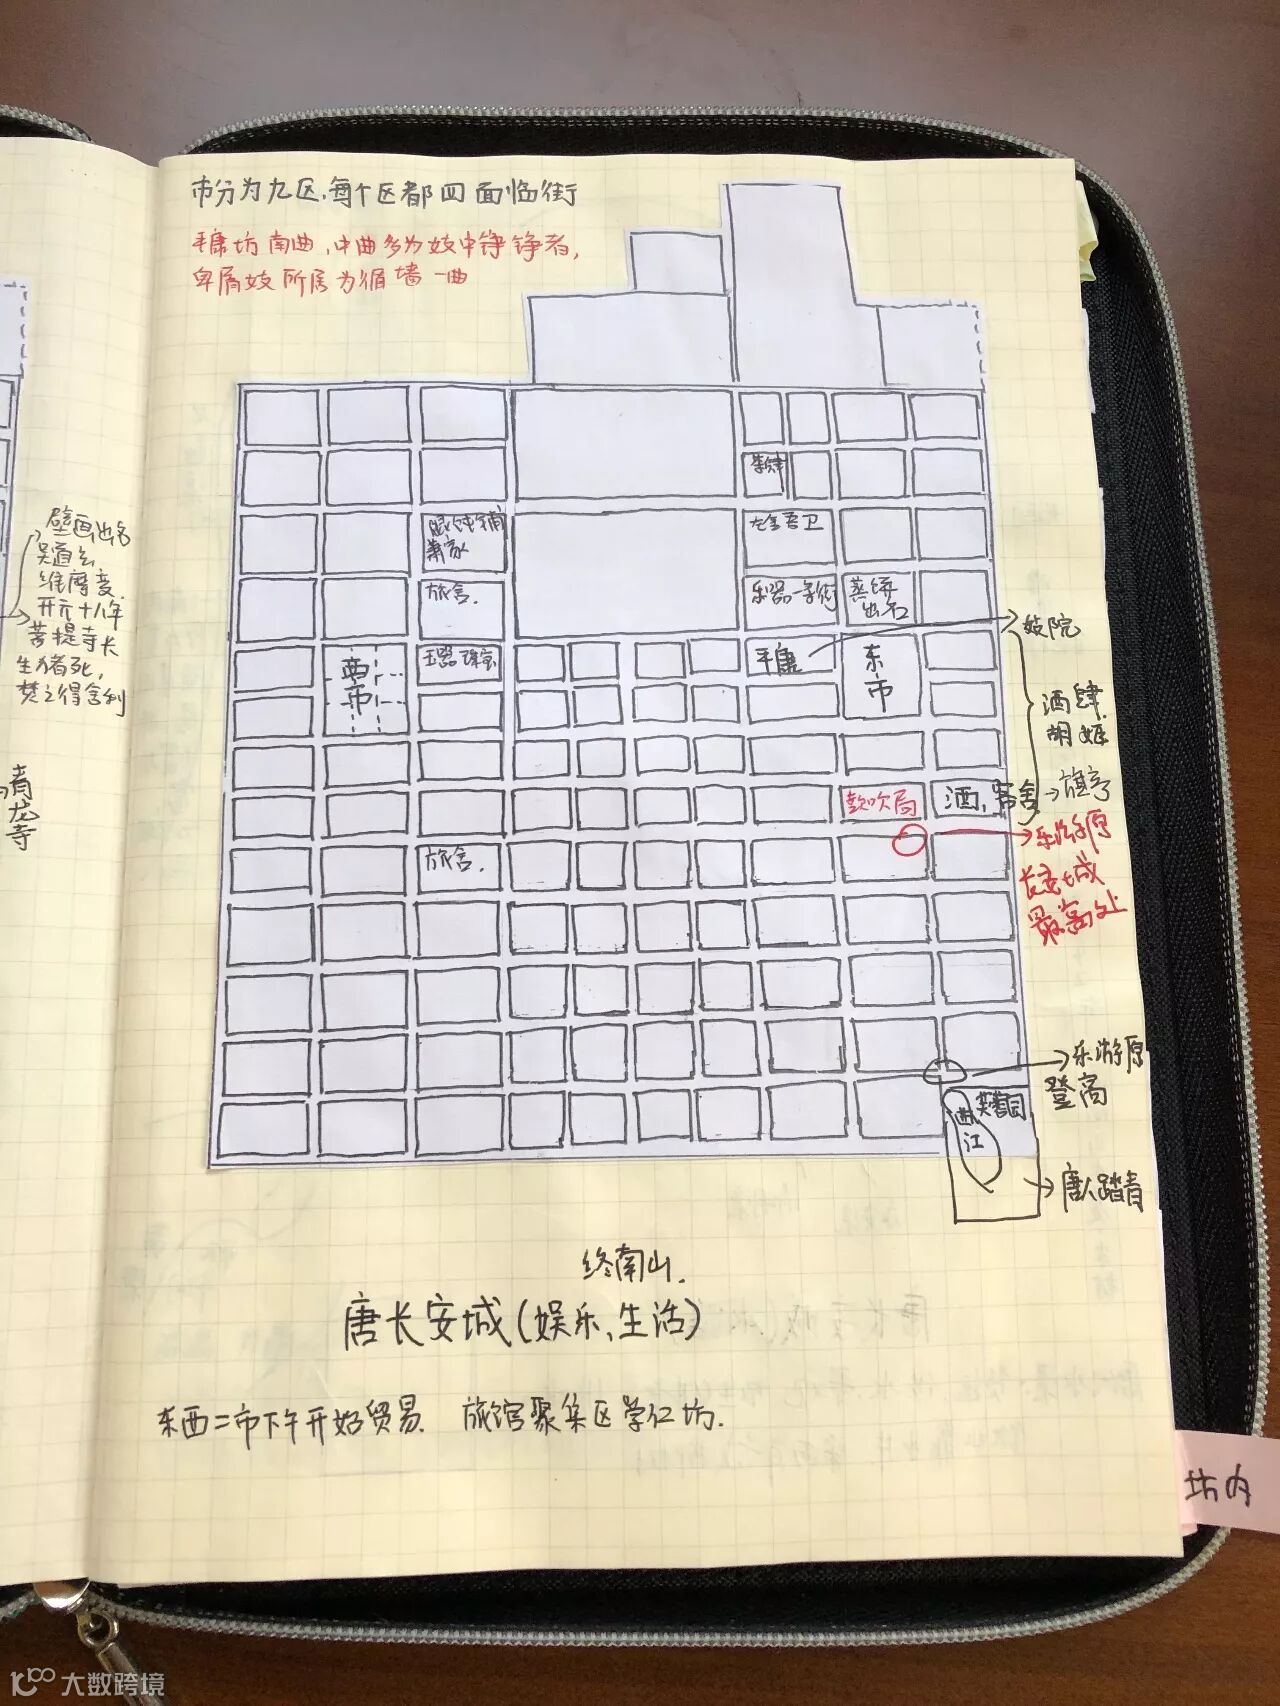 市分为九区,每个区都四面临街
平康坊南曲,中曲多为妓中铮铮者,
卑屑妓所居为循墙一曲
壁画出名
吴道玄
维摩变.
开元十八年
菩提寺长
生猪死,
焚之得舍利
青龙寺
左金吾卫
萧家
旅舍.
乐器一条街
蒸饼
出名
妓院
西市
玉器珠宝
平康
东市
酒肆
胡姬
鼓吹局
酒,
旗亭
乐游原
长安城
最高处
旅舍.
乐游原
登高
芙蓉园
曲江
唐人踏青
终南山.
唐长安城(娱乐、生活)
东西二市下午开始贸易. 旅馆聚集区学仁坊.
坊内
大数跨境